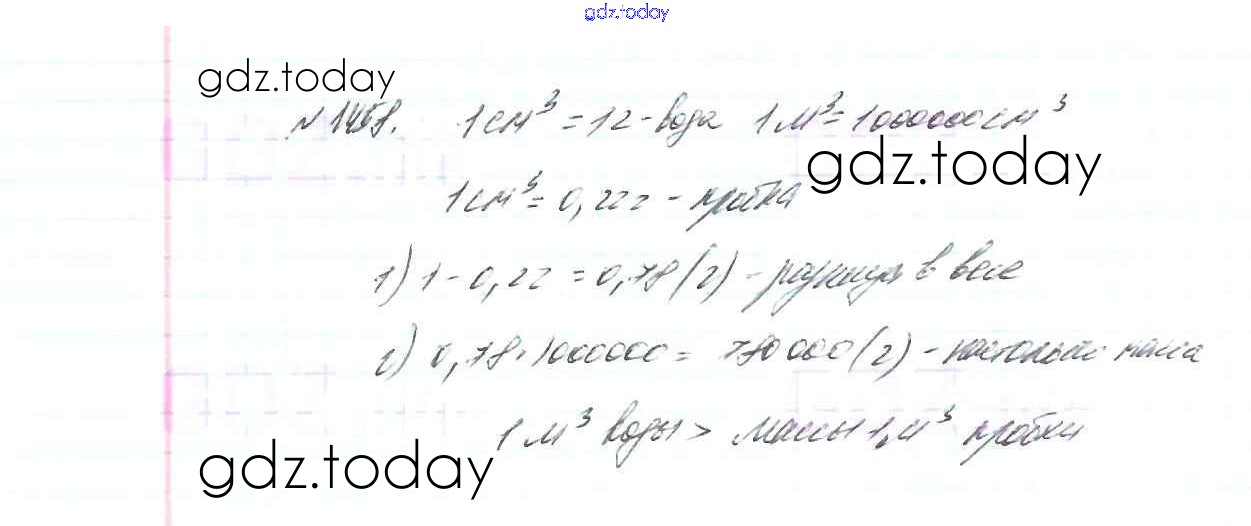 gdz.today
gdz.today
№1458. 1см³=1г-вода 1м³=1000000см³
gdz.today
1см³=0,22г-пробка
1) 1-0,22=0,78(г)-разница в весе
2) 0,78·1000000=780000(г)-настолько масса
1м³ воды> массы 1м³ пробки
gdz.today